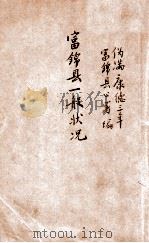 伪满康德三年
富锦县公署编
富锦县一般状况